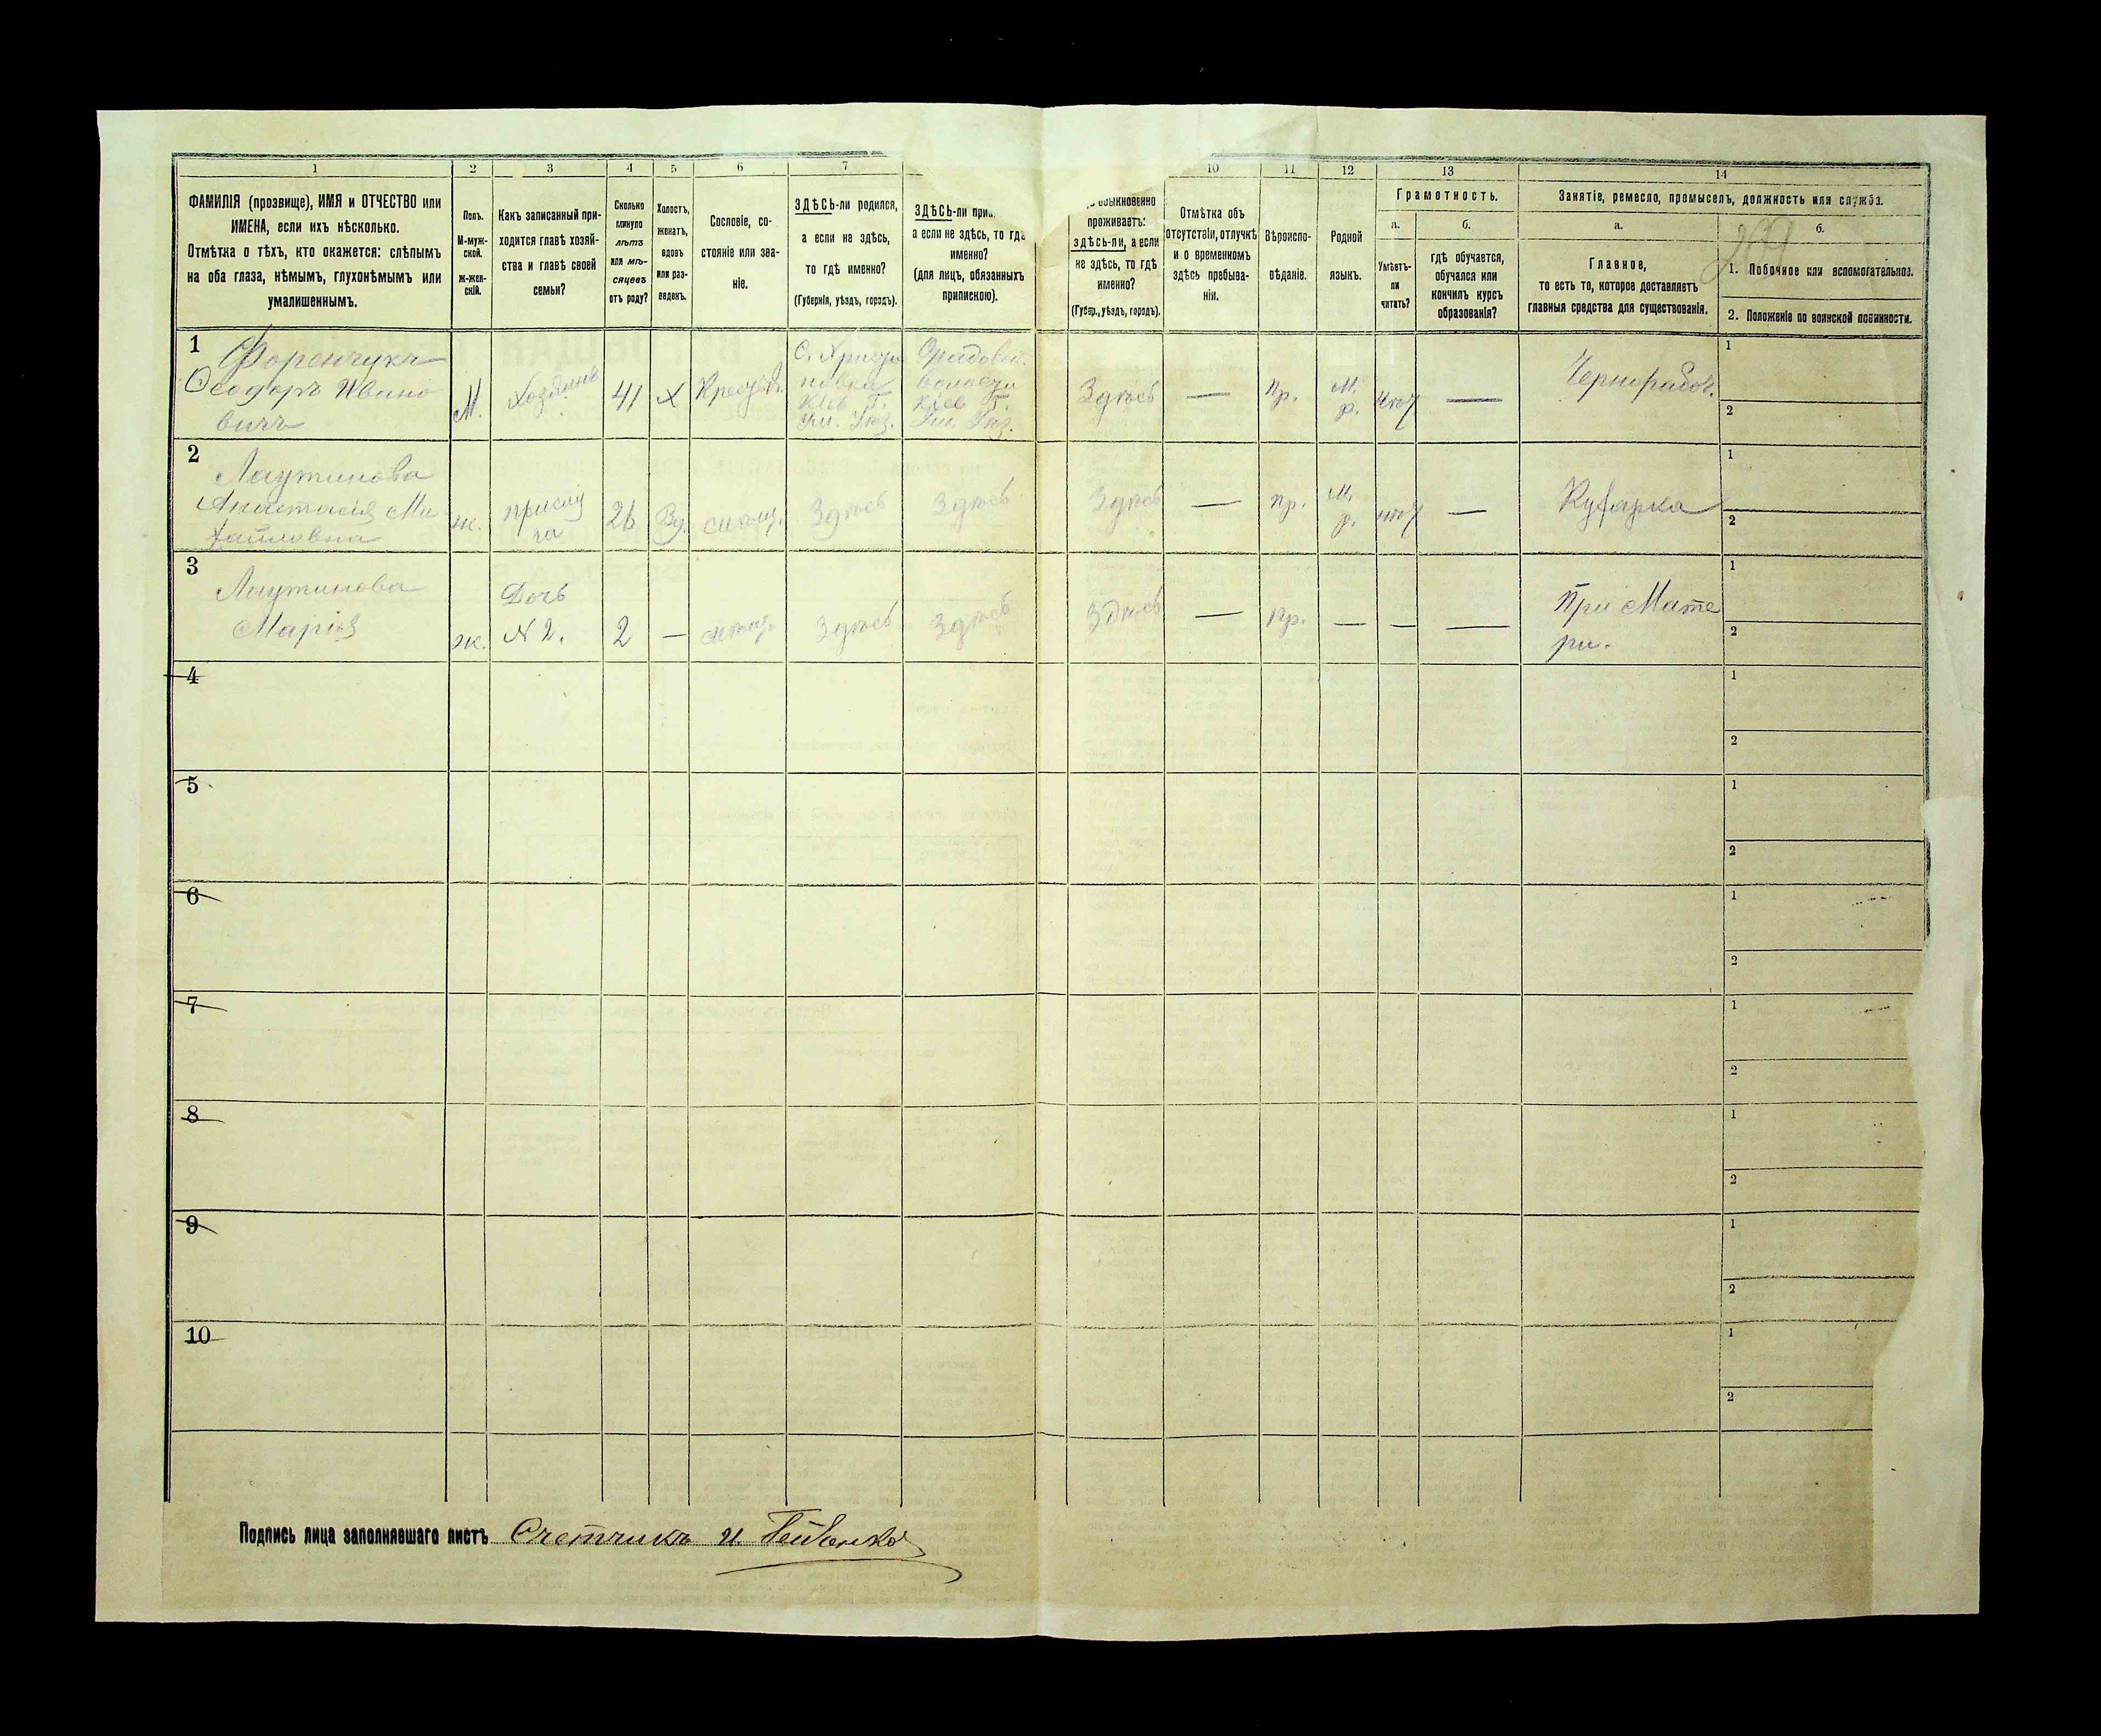 1 2 3 4 5 6 7 10 11 12 13 14
ФАМИЛІЯ (прозвище), ИМЯ и ОТЧЕСТВО или
ИМЕНА, если ихъ нѣсколько.
Отмѣтка о тѣхъ, кто окажется: слѣпымъ
на оба глаза, нѣмымъ, глухонѣмымъ или
умалишеннымъ.
Полъ.
М-муж-
ской.
ж-жен-
скій.
Какъ записанный при-
ходится главѣ хозяй-
ства и главѣ своей
семьи?
Сколько
минуло
лѣтъ
или мѣ-
сяцевъ
отъ роду?
Холостъ,
женатъ,
вдовъ
или раз-
веденъ.
Сословіе, со-
стояніе или зва-
ніе.
ЗДѢСЬ-ли родился,
а если не здѣсь,
то гдѣ именно?
(Губернія, уѣздъ, городъ).
ЗДѢСЬ-ли
а если не здѣсь, то гдѣ
именно?
(для лицъ, обязанныхъ
припискою).
обыкновенно
проживаетъ:
здѣсь-ли, а если
не здѣсь, то гдѣ
именно?
(Губер., уѣздъ, городъ).
Отмѣтка объ
отсутствіи, отлучкѣ
и о временномъ
здѣсь пребыва-
ніи.
Вѣроиспо-
вѣданіе.
Родной
языкъ.
Грамотность.
а.
Умѣетъ-
ли
читать?
б.
гдѣ обучается,
обучался или
кончилъ курсъ
образованія?
Занятіе, ремесло, промыселъ, должность или служба.
а.
Главное,
то есть то, которое доставляетъ
главныя средства для существованія.
б.
1. Побочное или вспомогательное.
2. Положеніе по воинской повинности.
1
Ѳеодоръ Ивано
вичъ
М.
Хозяинъ
41
Х
Крест.
Кіев. Г.
Ум. Уѣз.
волости
Кіев Г.
Ум. Уѣз.
Здѣсь
—
пр.
М.
р.
нѣт
—
Чернорабоч.
1
2
2
Анастасія Ми
хайловна
ж.
прислу
га
26
Вд.
Здѣсь
Здѣсь
Здѣсь
—
пр.
М.
р.
нѣт
—
Кухарка
1
2
3
Марія
ж.
Дочь
N 2.
2
—
Здѣсь
Здѣсь
Здѣсь
—
пр.
—
—
—
При Мате
ри.
1
2
4
1
2
5
1
2
6
1
2
7
1
2
8
1
2
9
1
2
10
1
2
Подпись лица заполнявшаго листъ Счетчикъ И.